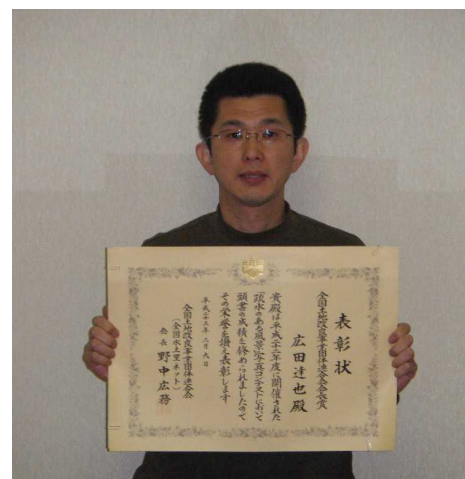 表彰状
全国土地改良事業団体連合会会長賞
広田達也殿
貴殿は平成二十二年度に開催された
「疏水のある風景」写真コンテストにおいて
頭書の成績を修められましたので
その栄誉を讃え表彰します
平成二十三年二月九日
全国土地改良事業団体連合会
(全国水土里ネット)
会長 野中広務